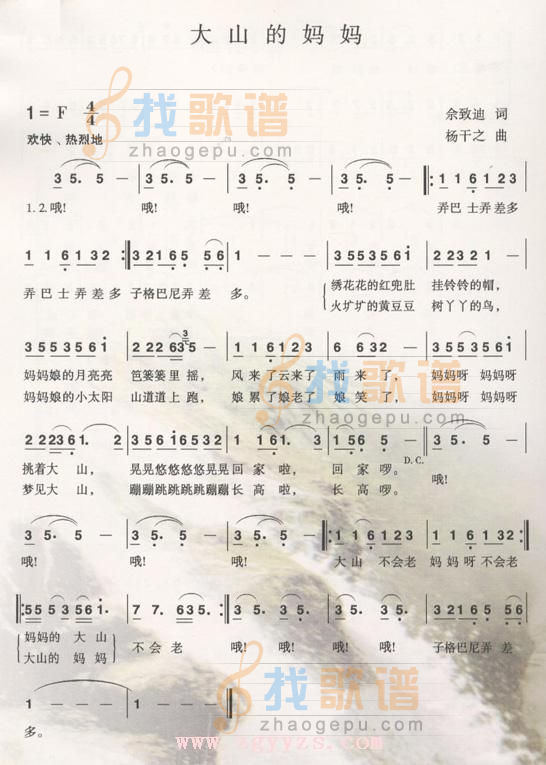 大山的妈妈
1=F 4/4
佘致迪 词
欢快、热烈地
杨干之 曲
找歌谱
zhaogepu.com
3 5. 5 — 3 5. 5 — 3 5. 5 — 3 5. 5 — 1 1 6 1 2 3
1.2.哦! 哦! 哦! 哦! 弄巴士弄差多
1 1 6 1 3 2 3 2 1 6 5 5 6 1 — — 3 5 5 3 5 6 1 2 2 3 2 1 —
弄巴士弄差多 子格巴尼弄差 多。 绣花花的红兜肚 挂铃铃的帽,
火圹圹的黄豆豆 树丫丫的鸟,
3 5 5 3 5 6 1 2 2 2 6 3 5 3 1 1 2 3 1 2 6 6 3 2 — 3 5 5 3 5 6 1
妈妈娘的月亮亮 笆篓篓里摇, 风来了云来了 雨来了, 妈妈呀 妈妈呀
妈妈娘的小太阳 山道道上跑, 娘累了娘老了 娘笑了, 妈妈呀 妈妈呀
找歌谱
zhaogepu.com
2 2 2 3 6 1. 2 3 5 6 1 6 5 3 2 1 1 6 1. 3 1 5 6 5 — 3 5. 5 —
D.C.
挑着大山, 晃晃悠悠悠悠晃晃 回家啦, 回家啰。 哦!
梦见大山, 蹦蹦跳跳跳跳蹦蹦 长高啦, 长高啰。
3 5. 5 — 3 5. 5 — 3 5. 5 — 1 1 6 1 2 3 1 1 6 1 3 2
哦! 哦! 哦! 大山 不会老 妈妈呀不会老
5 5 5 3 5 6 1. 7 7. 6 3 5. 3 5. 5 — 3 5. 5 — 3 2 1 6 5 5 6
妈妈的 大山 不会老 哦! 哦! 哦! 子格巴尼弄差
大山的 妈妈
1 — — 1 — —
多。
找歌谱
zhaogepu.com
www.zgyyzs.com